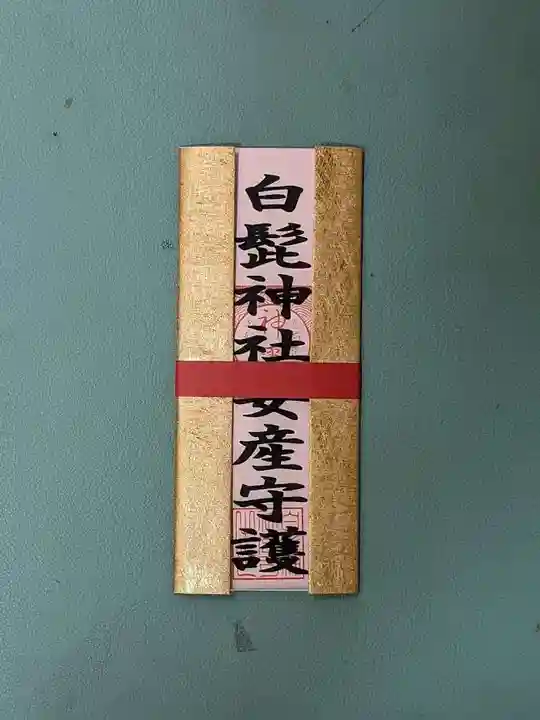 白髭神社安産守護